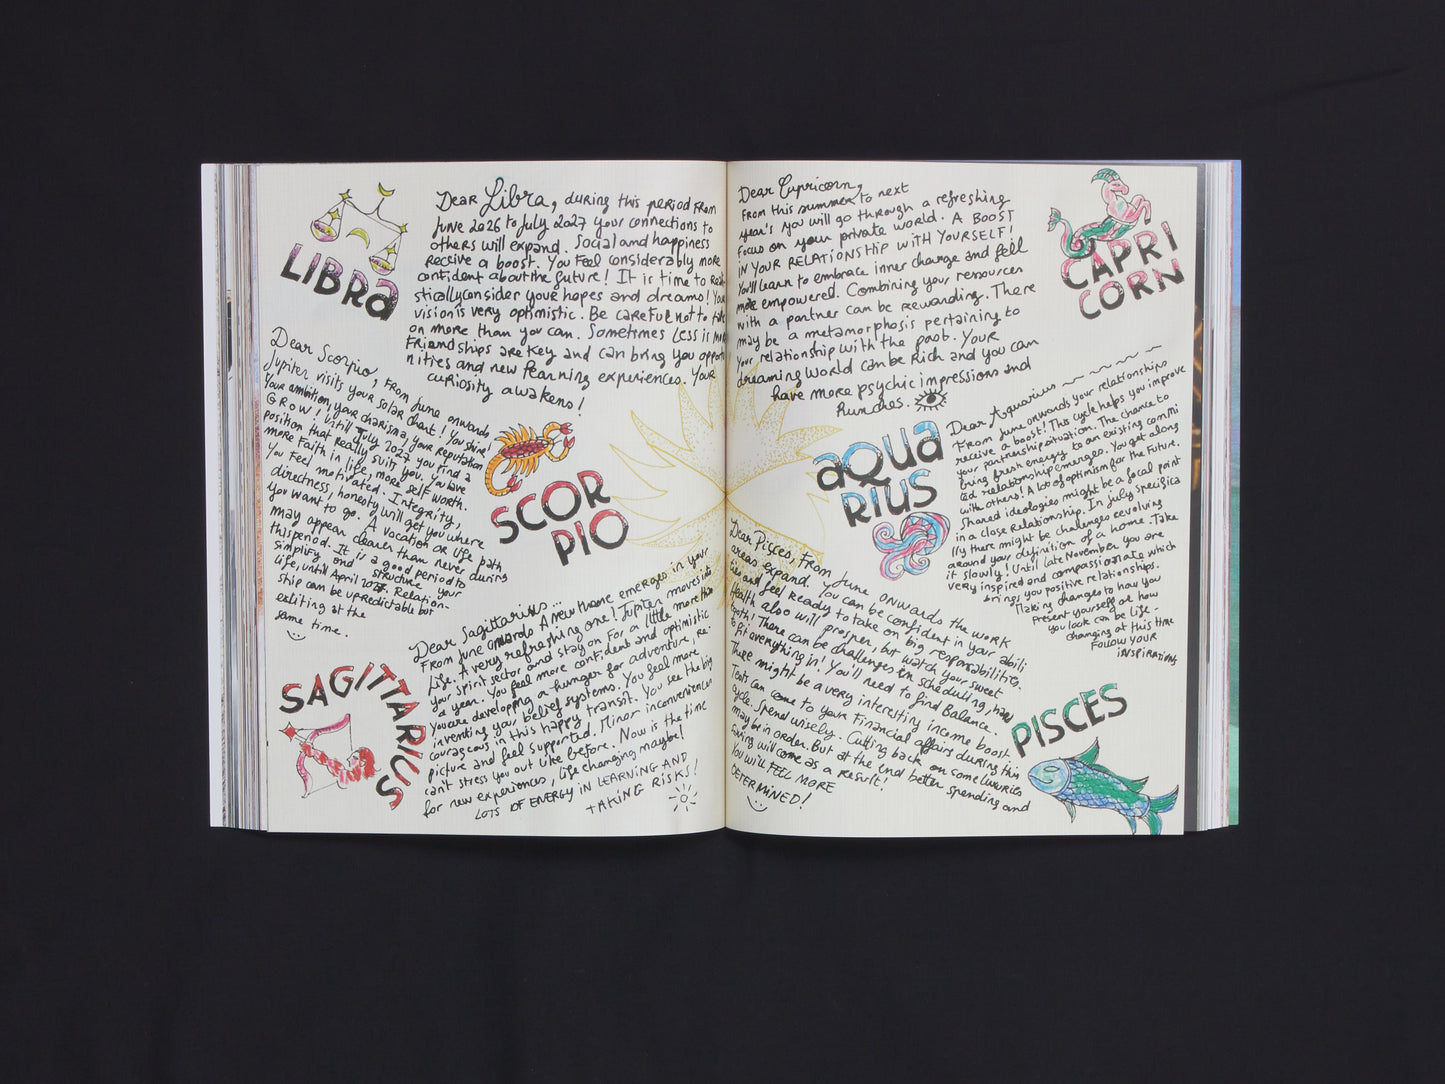 LIBRa
Dear Libra, during this period from
June 2026 to July 2027 your connections to
others will expand. Social and happiness
Receive a boost. You feel considerably more
confident about the future! It is time to
stically consider your hopes and dreams! Your
vision is very optimistic. Be careful not to take
on more than you can. Sometimes less is more
Friendships are key and can bring you opportu
nities and new fearning experiences. Your
curiosity awakens!
Dear Scorpio, From June onwards
Jupiter visits your solar chart! You shine!
Your ambition, your charisma, your reputation
GROW! Until July 2027 you find a
position that Really suits you. You have
more Faith in life, more self worth.
You feel motivated. Integrity,
directness, honesty will get you where
you want to go. A vocation or life path
may appear clearer than never during
this period. It is a good period to
simplify and structure your
life, until April 2027. Relation-
ship can be upredictable but
exliting at the
same time.
SCOR
PIO
SAGITTARIUS
Dear Sagittarius...
From June onwards A new theme emerges in your
Life. A very refreshing one! Jupiter moves into
your spirit sector and stay on For a little more than
a year. You feel more confident and optimistic
You are developing a hunger for adventure, re-
inventing your belief systems. You feel more
courageous in this happy transit. You see the big
picture and feel supported. Minor inconveniences
cant stress you out like before. Now is the time
for new experiences, life changing maybe!
LOTS OF ENERGY IN LEARNING AND
TAKING RISKS!
Dear Capricorn,
From this summer to next
year's you will go through a refreshing
focus on your private world. A BOOST
IN YOUR RELATIONSHIP WITH YOURSELF!
You'll learn to embrace inner change and feel
more empowered. Combining your resources
with a partner can be rewarding. There
may be a metamorphosis pertaining to
Your relationship with the past. YOUR
dreaming world can be Rich and you can
have more psychic impressions and
Hunches.
CAPRI
CORN
aQUa
RIUS
Dear Aquarius
From June onwards Your relationships
receive a boost! This cycle helps you improve
your partnership situation. The chance to
bring fresh energy to an existing commi
ted relationship emerges. You get along
with others! A lot of optimism for the future.
Shared ideologies might be a focal point
in a close Relationship. In July specifica
lly there might be challenges revolving
around your definition of a home. Take
it slowly! Until late November you are
very inspired and compassionate which
brings you positive relationships.
Making changes to how you
Present yourself or how
you look can be life-
changing at this time
FOLLOW YOUR
INSPIRATIONS
Dear Pisces, From June onwards the work
areas expand. You can be confident in your abili
ties and feel ready to take on big responsabilities.
Health also will prosper, but watch your sweet
tooth! There can be challenges in scheduling, how
to fit everything in! You'll need to find Balance.
There might be a very interesting income boost.
Tests can come to your Financial affairs during this
cycle. Spend wisely. Cutting back on some luxuries
may be in order. But at the end better spending and
saving will come as a result!
YOU WILL FEEL MORE
DETERMINED!
PISCES